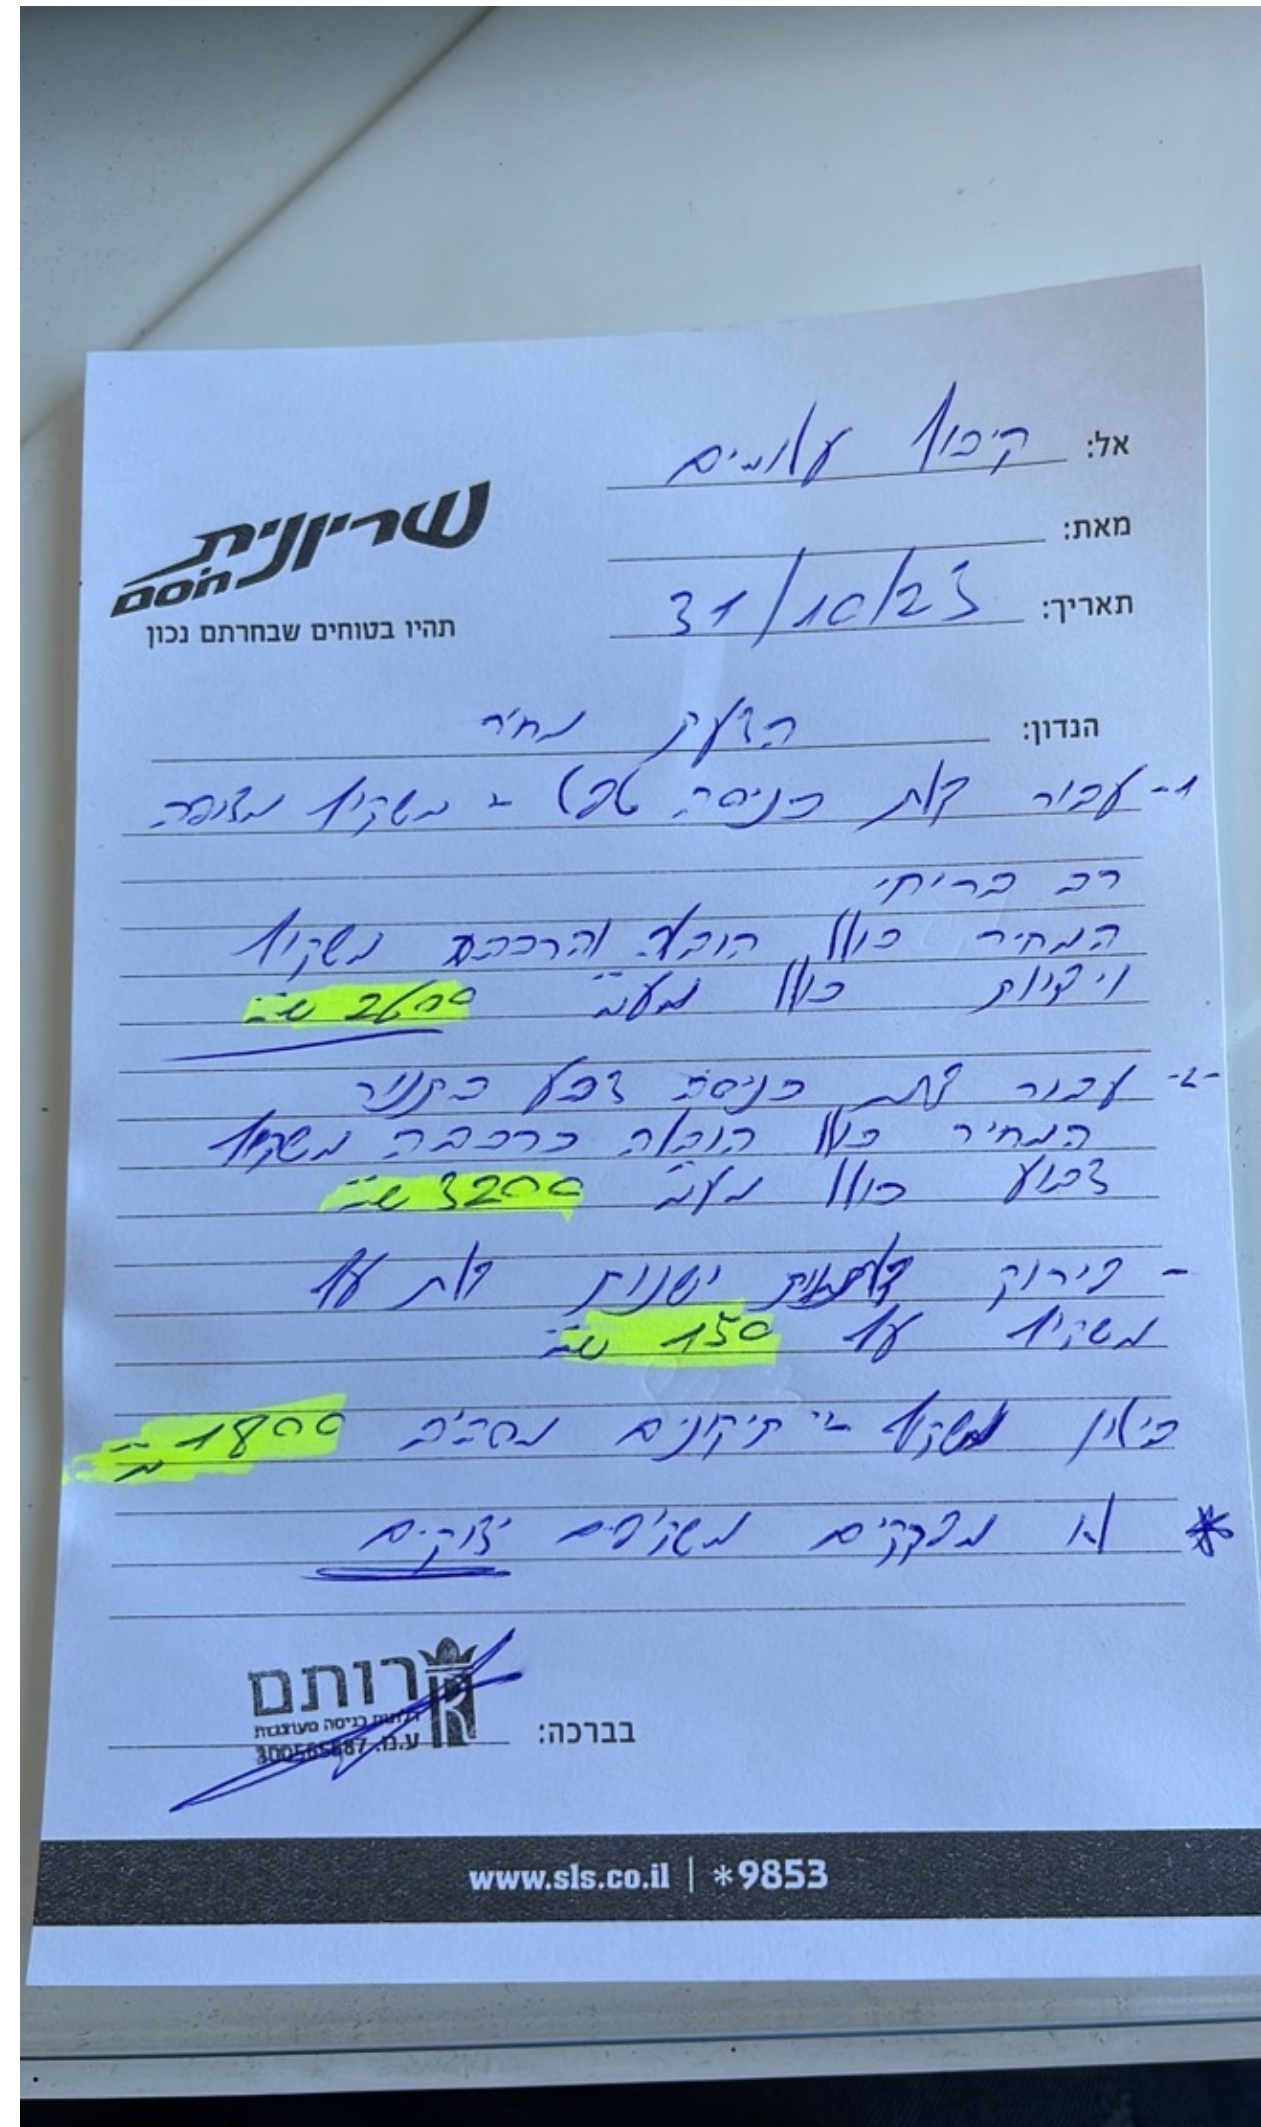 אל: קיבוץ עלומים
שריונית
חסם
תהיו בטוחים שבחרתם נכון
מאת:
תאריך: 31/10/23
הנדון: הצעת מחיר
1- עבור דלת כניסה - משקוף
רב בריחי
המחיר כולל הובלה והרכבה משקוף
כולל מע"מ 2600 ש"ח
2- עבור דלת כניסה צבע בתנור
המחיר כולל הובלה הרכבה משקוף
צבוע כולל מע"מ 3200 ש"ח
- פירוק דלתות ישנות דלת עץ
משקוף עץ 150 ש"ח
משקוף תיקונים מסביב 1800
* לא מפרקים משקופים יצוקים
רותם
דלתות כניסה מעוצבות
ע.מ. 300565687
בברכה:
www.sls.co.il | *9853